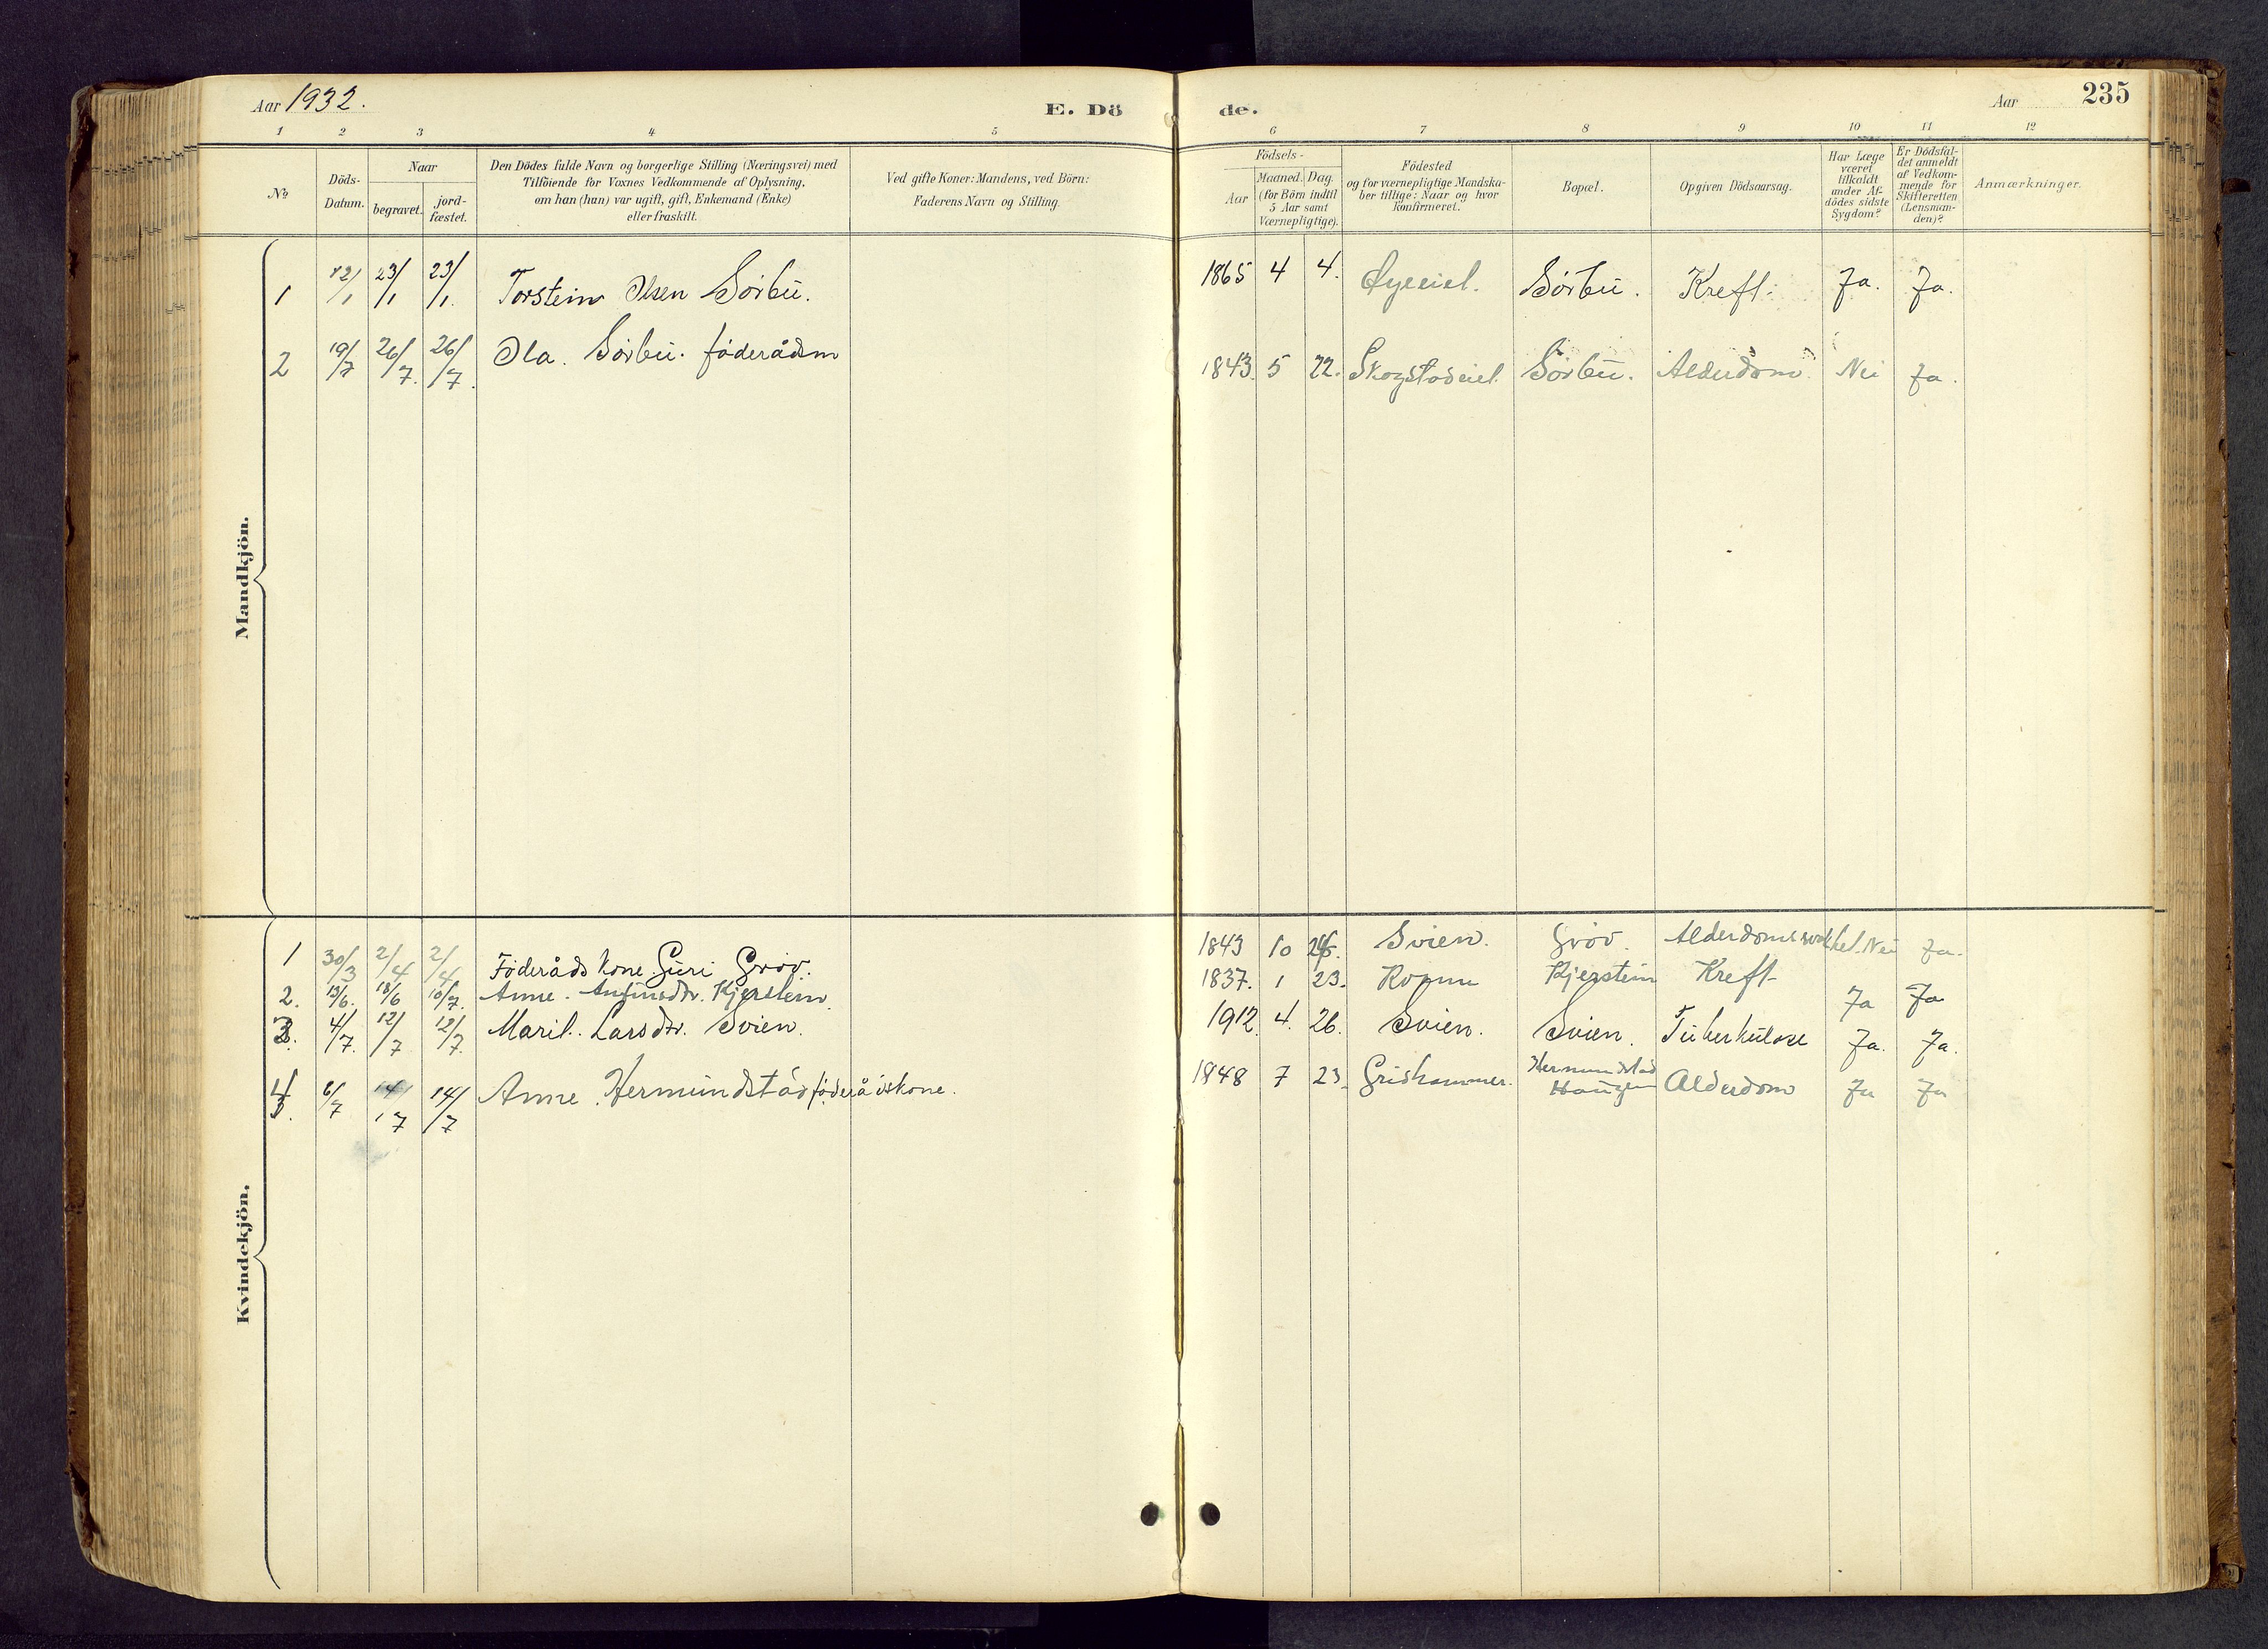 Aar 1932.
E. Dö
de.
Aar
235
1 2 3 4 5 6 7 8 9 10 11 12
No
Döds-
Datum.
Naar
begravet.
jord-
fæstet.
Den Dödes fulde Navn og borgerlige Stilling (Næringsvei) med
Tilföiende for Voxnes Vedkommende af Oplysning,
om han (hun) var ugift, gift, Enkemand (Enke)
eller fraskilt.
Ved gifte Koner: Mandens, ved Börn:
Faderens Navn og Stilling.
Födsels-
Aar
Maaned. Dag
(for Börn indtil
5 Aar samt
Værnepligtige).
Födested
og for værnepligtige Mandska-
ber tillige: Naar og hvor
konfirmeret.
Bopæl.
Opgiven Dödsaarsag.
Har Læge
været
tilkaldt
under Af-
dödes sidste
Sygdom?
Er Dödsfal-
det anmeldt
af Vedkom-
mende for
Skifteretten
(Lensman-
den)?
Anmærkninger.
Mandkjön.
1 12/1 23/1 23/1. Torstein Olsen Sörbü. 1865 4 4. Sörbü. Kreft. Ja. Ja.
2 19/7 26/7. 26/7. Ola. Sörbü. föderådsm 1843. 5 22. Skogstadeiel. Sörbü. Alderdom. Nei Ja.
Kvindekjön.
1 30/3 2/4 2/4 Föderådskone. Guri Gröv. 1843 10 Svien. Gröv. Nei Ja.
2. 13/6. 18/6 10/7. Anne. Anfinsdtr. Kjerstein. 1837. 1 23. Kjerstein Kreft Ja Ja
3. 4/7. 12/7 12/7. Marit. Larsdtr. Svien. 1912 4. 26. Svien. Svien. Tüberkülose Ja. Ja.
4 6/7 14/7 14/7 Anne. Hermündstad föderådskone. 1848 7 23. Grishammer. Hermundstad
Haugen Alderdom Ja Ja